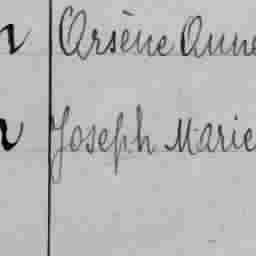 Arsène Anne
Joseph Marie